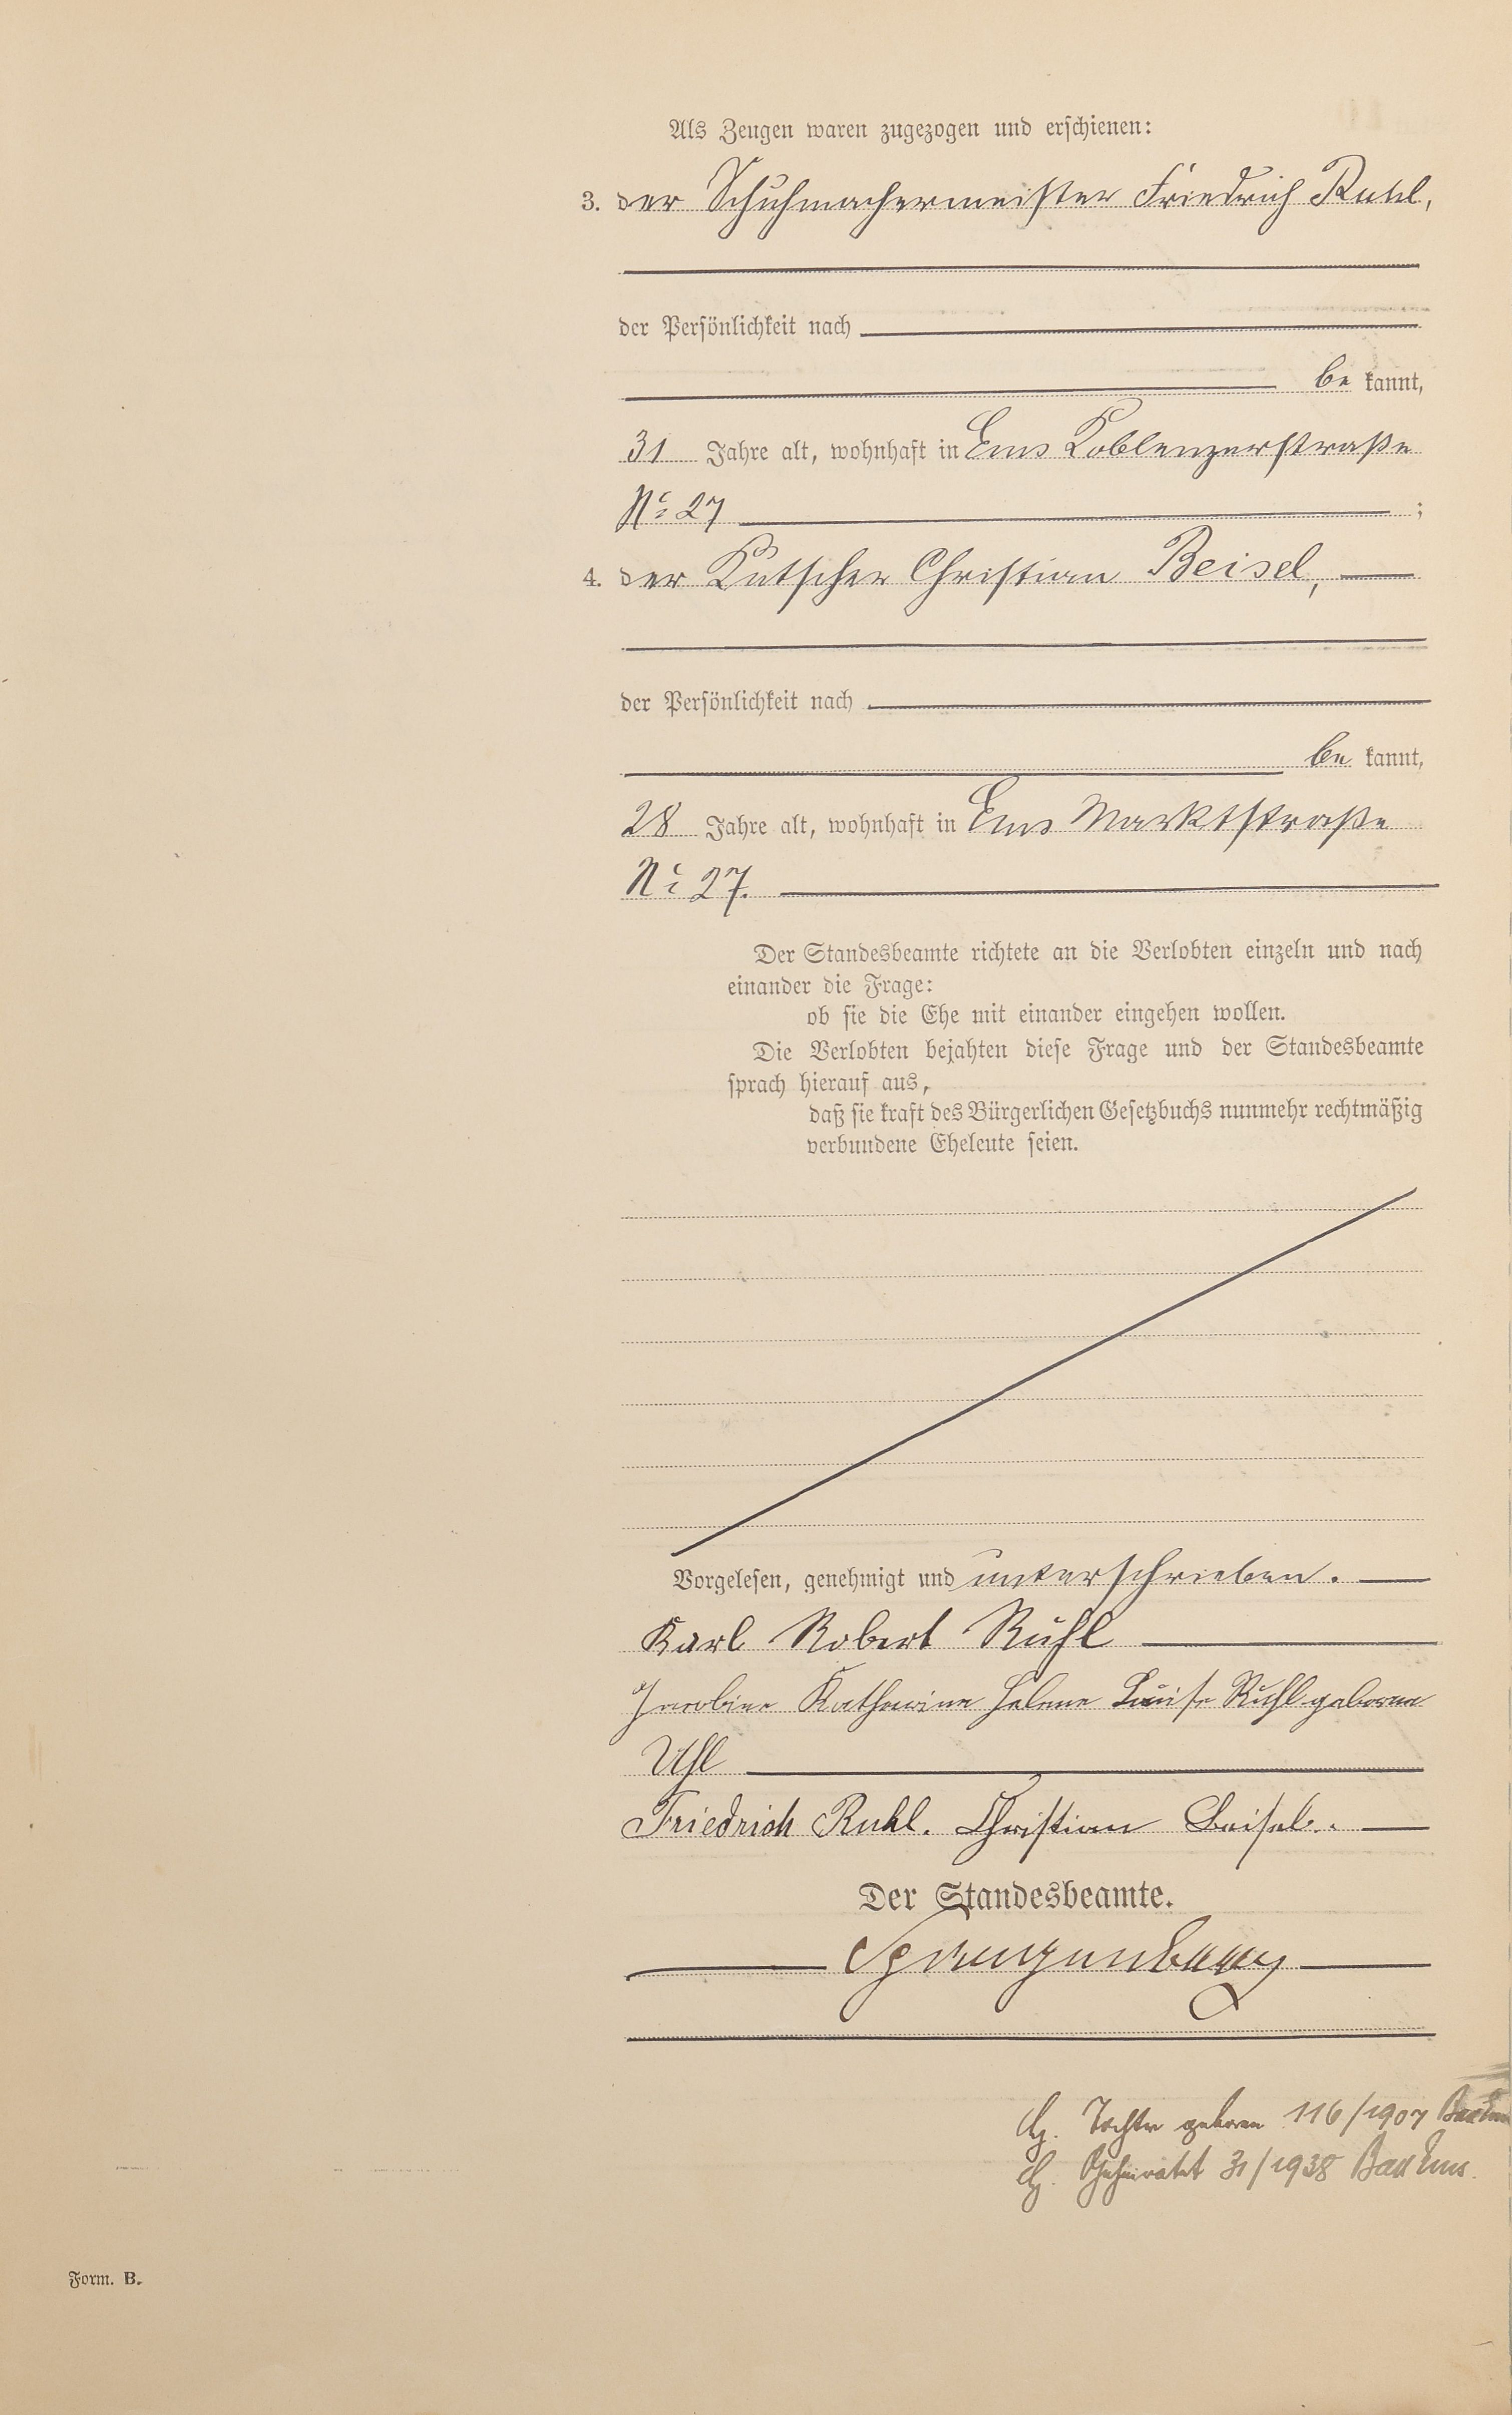 Als Zeugen waren zugezogen und erschienen:
3. der Schuhmachermeister Friedrich Ruhl,
der Persönlichkeit nach
be kannt,
31 Jahre alt, wohnhaft in Ems Koblenzerstraße
No 27 ;
4. der Kutscher Christian Beisel,
der Persönlichkeit nach
be kannt,
28 Jahre alt, wohnhaft in Ems Marktstraße
No 27.
Der Standesbeamte richtete an die Verlobten einzeln und nach
einander die Frage:
ob sie die Ehe mit einander eingehen wollen.
Die Verlobten bejahten diese Frage und der Standesbeamte
sprach hierauf aus,
daß sie kraft des Bürgerlichen Gesetzbuchs nunmehr rechtmäßig
verbundene Eheleute seien.
Vorgelesen, genehmigt und unterschrieben.
Karl Robert Ruhl
Jacobine Katharine Helene Luise Ruhl geborene
Uhl
Friedrich Ruhl. Christian Beisel.
Der Standesbeamte.
Tochter geboren 116/1907 Bad Ems
Geheiratet 31/1938 Bad Ems.
Form. B.